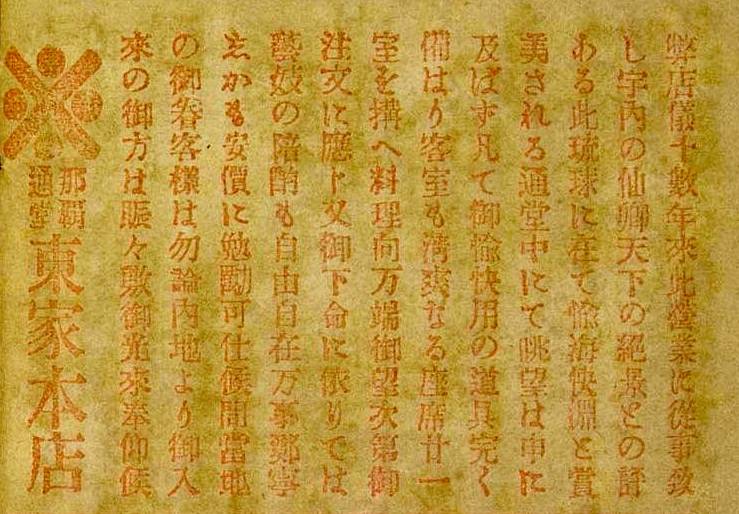 弊店儀十數年來此營業に從事致
し宇內の仙鄕天下の絕景との評
ある此琉球に在て愉海快淵と賞
美される通堂中にて眺望は申に
及ばず凡て御愉快用の道具完く
備はり客室も淸爽なる座席廿一
室を搆へ料理向万端御望次第御
注文に應じ又御下命に依りては
藝妓の陪酌も自由自在万事鄭寧
志かも安價に勉勵可仕候間當地
の御眷客樣は勿論內地より御入
來の御方は賑々敷御光來奉仰候
那覇
通堂
東家本店